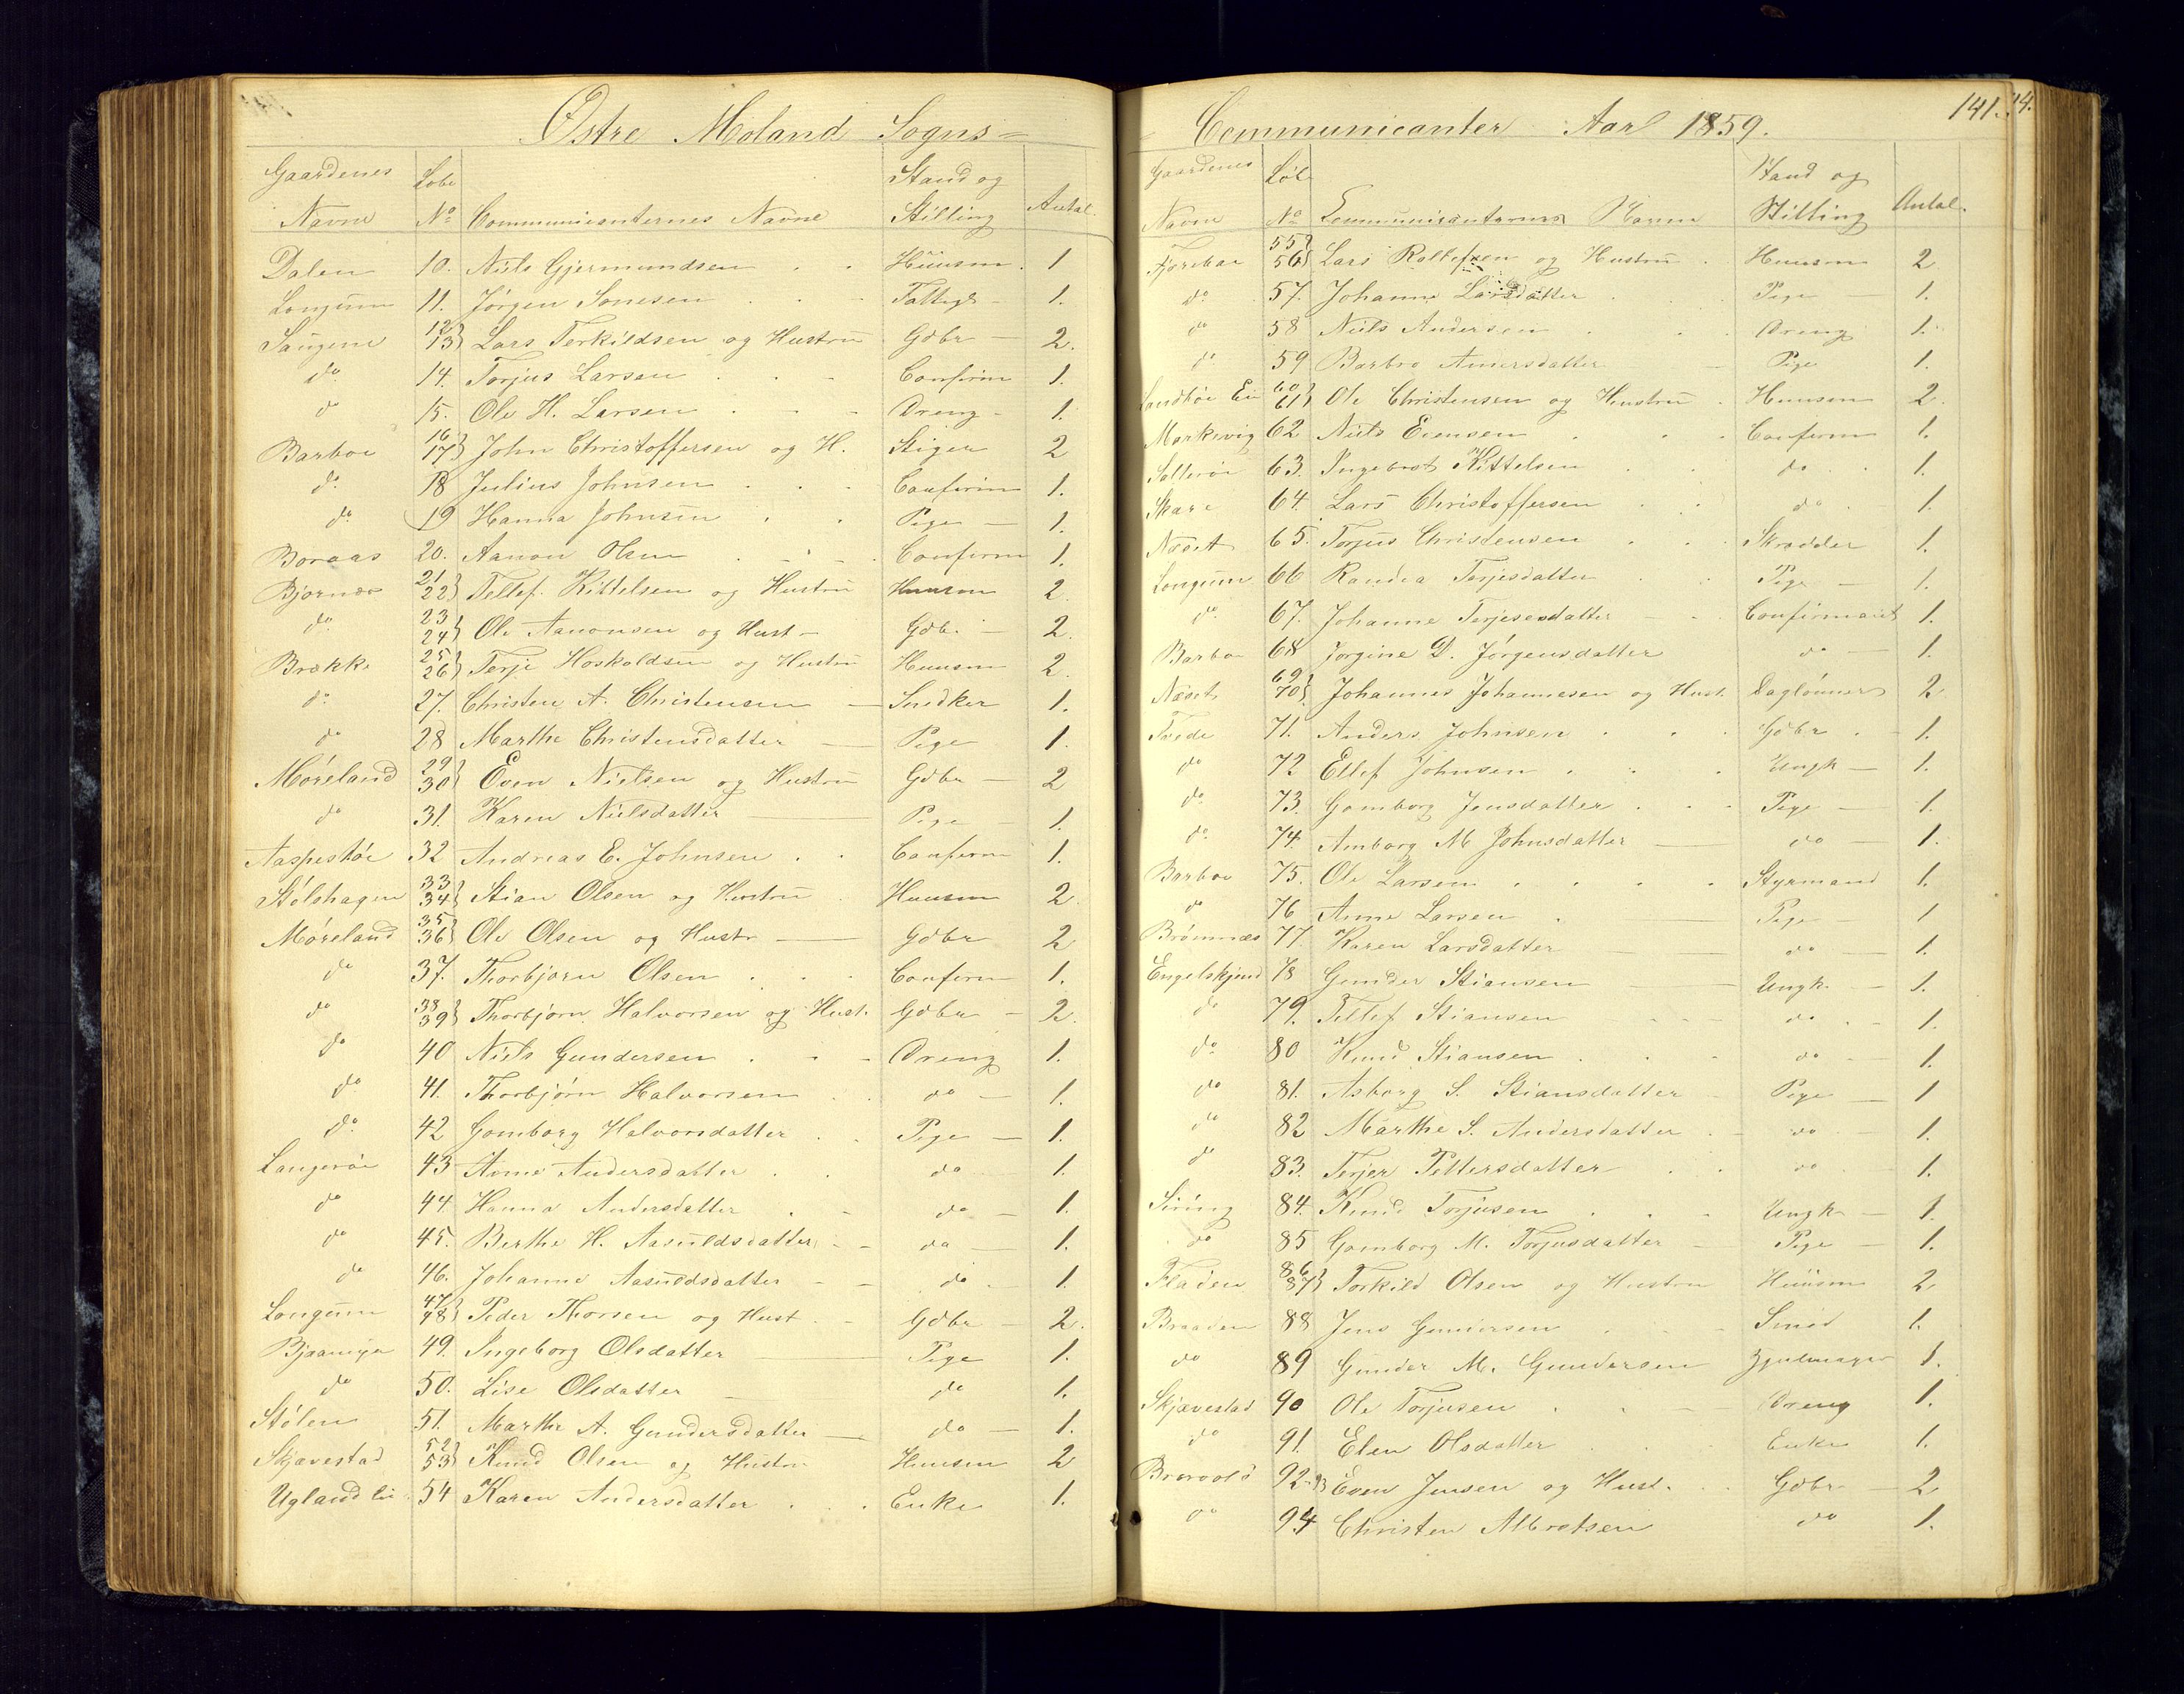 Østre Moland Sogns=
Gaardenes Løbe Stand og
Navne No Communicanternes Navne Stilling Antal.
Dalen 10. Niels Gjermundsen Huusm. 1
Longum 11. Jørgen Fattigl 1.
Saugene 12 13} Lars Terkildsen og Hustru Gdbr 2.
do 14. Torjus Larsen Confirm 1.
do 15. Ole H. Larsen Dreng 1.
Barboe 16 17} John Christoffersen og H. Stiger 2
do 18 Julius Johnsen Confirm 1.
do 19 Hanna Johnsen Pige 1.
Boraas 20. Aanon Olsen Confirm 1.
Bjørnæs 21 22} Tellef Kittelsen og Hustru Huusm 2.
do 23 24} Ole Aanonsen og Hust Gdbr 2.
Brække 25 26} Terje Hoskoldsen og Hustru Huusm 2.
do 27. Christen A. Christensen Snedker 1.
do 28 Marthe Christensdatter Pige 1.
Møreland 29 30} Even Nielsen og Hustru Gdbr 2
do 31. Karen Nielsdatter Pige 1.
Aaspestøe 32 Andreas E. Johnsen Confirm 1.
Stølshagen 33 34} Stian Olsen og Hustru Huusm 2.
Møreland 35 36} Ole Olsen og Hustr Gdbr 2
do 37. Thorbjørn Olsen Confirm 1.
do 38 39} Thorbjørn Halvorsen og Hust. Gdbr 2.
do 40 Niels Gundersen Dreng 1.
do 41. Thorbjørn Halvorsen do 1.
do 42 Gomborg Halvorsdatter Pige 1.
Langerøe 43 Anne Andersdatter do 1.
do 44. Hanna Andersdatter do 1.
do 45. Berthe H. Aasuldsdatter do 1.
do 46. Johanne Aasuldsdatter do 1.
Longum 47 48} Peder Thorsen og Hust Gdbr 2.
49. Ingeborg Olsdatter Pige 1.
do 50. Lise Olsdatter do 1.
Stølen 51. Marthe A. Gundersdatter do 1.
Skjævestad 52 53} Knud Olsen og Hustru Huusm 2
Uglandlie 54 Karen Andersdatter Enke 1.
Communicanter Aar 1859. 141.
Gaardenes Løb Stand og
Navne No Communicanternes Navne Stilling Antal.
Fjæreboe 55 56} Lars Rollefsen og Hustru Huusm 2
do 57. Johanne Larsdatter Pige 1.
do 58 Niels Andersen Dreng 1.
do 59 Barbro Andersdatter Pige 1.
60 61} Ole Christensen og Hustru Huusm 2.
Morkevig 62 Niels Evensen Confirm 1.
63. Ingebret Kittelsen do 1.
Skare 64. Lars Christoffersen do 1.
Næset 65. Torjus Christensen Skrædder 1.
Longum 66 Randea Terjesdatter Pige 1.
do 67. Johanne Terjesesdatter Confirmant 1.
Barboe 68 Jørgine D. Jørgensdatter do 1.
Næset 69 70} Johannes Johannesen og Hust. Daglønner 2
Tvede 71. Anders Johnsen Gdbr 1.
do 72 Ellef Johnsen Ungk 1.
do 73. Gomborg Jensdatter Pige 1.
do 74. Amborg M Johnsdatter do 1.
Barboe 75. Ole Larsen Styrmand 1.
do 76 Anne Larsen Pige 1
Brømnæs 77. Karen Larsdatter do 1.
Engelskjend 78 Gunder Stiansen Ungk. 1.
do 79. Tellef Stiansen do 1.
do 80 Knud Stiansen do 1.
do 81. Asborg S. Stiansdatter Pige 1
do 82 Marthe S. Andersdatter do 1.
do 83. Terjer Pettersdatter do 1.
Siring 84. Knud Torjusen Ungk 1.
do 85 Gomborg M. Torjusdatter Pige 1.
Fladen 86 87} Torkild Olsen og Hustru Huusm 2
Braaden 88 Jens Gundersen Smed 1.
do 89 Gunder M. Gundersen Hjulmager 1.
Skjævestad 90 Ole Torjusen Dreng 1.
do 91. Elen Olsdatter Enke 1.
Brævold 92-93 Even Jensen og Hust. Gdbr 2
do 94 Christen Albretsen do 1.